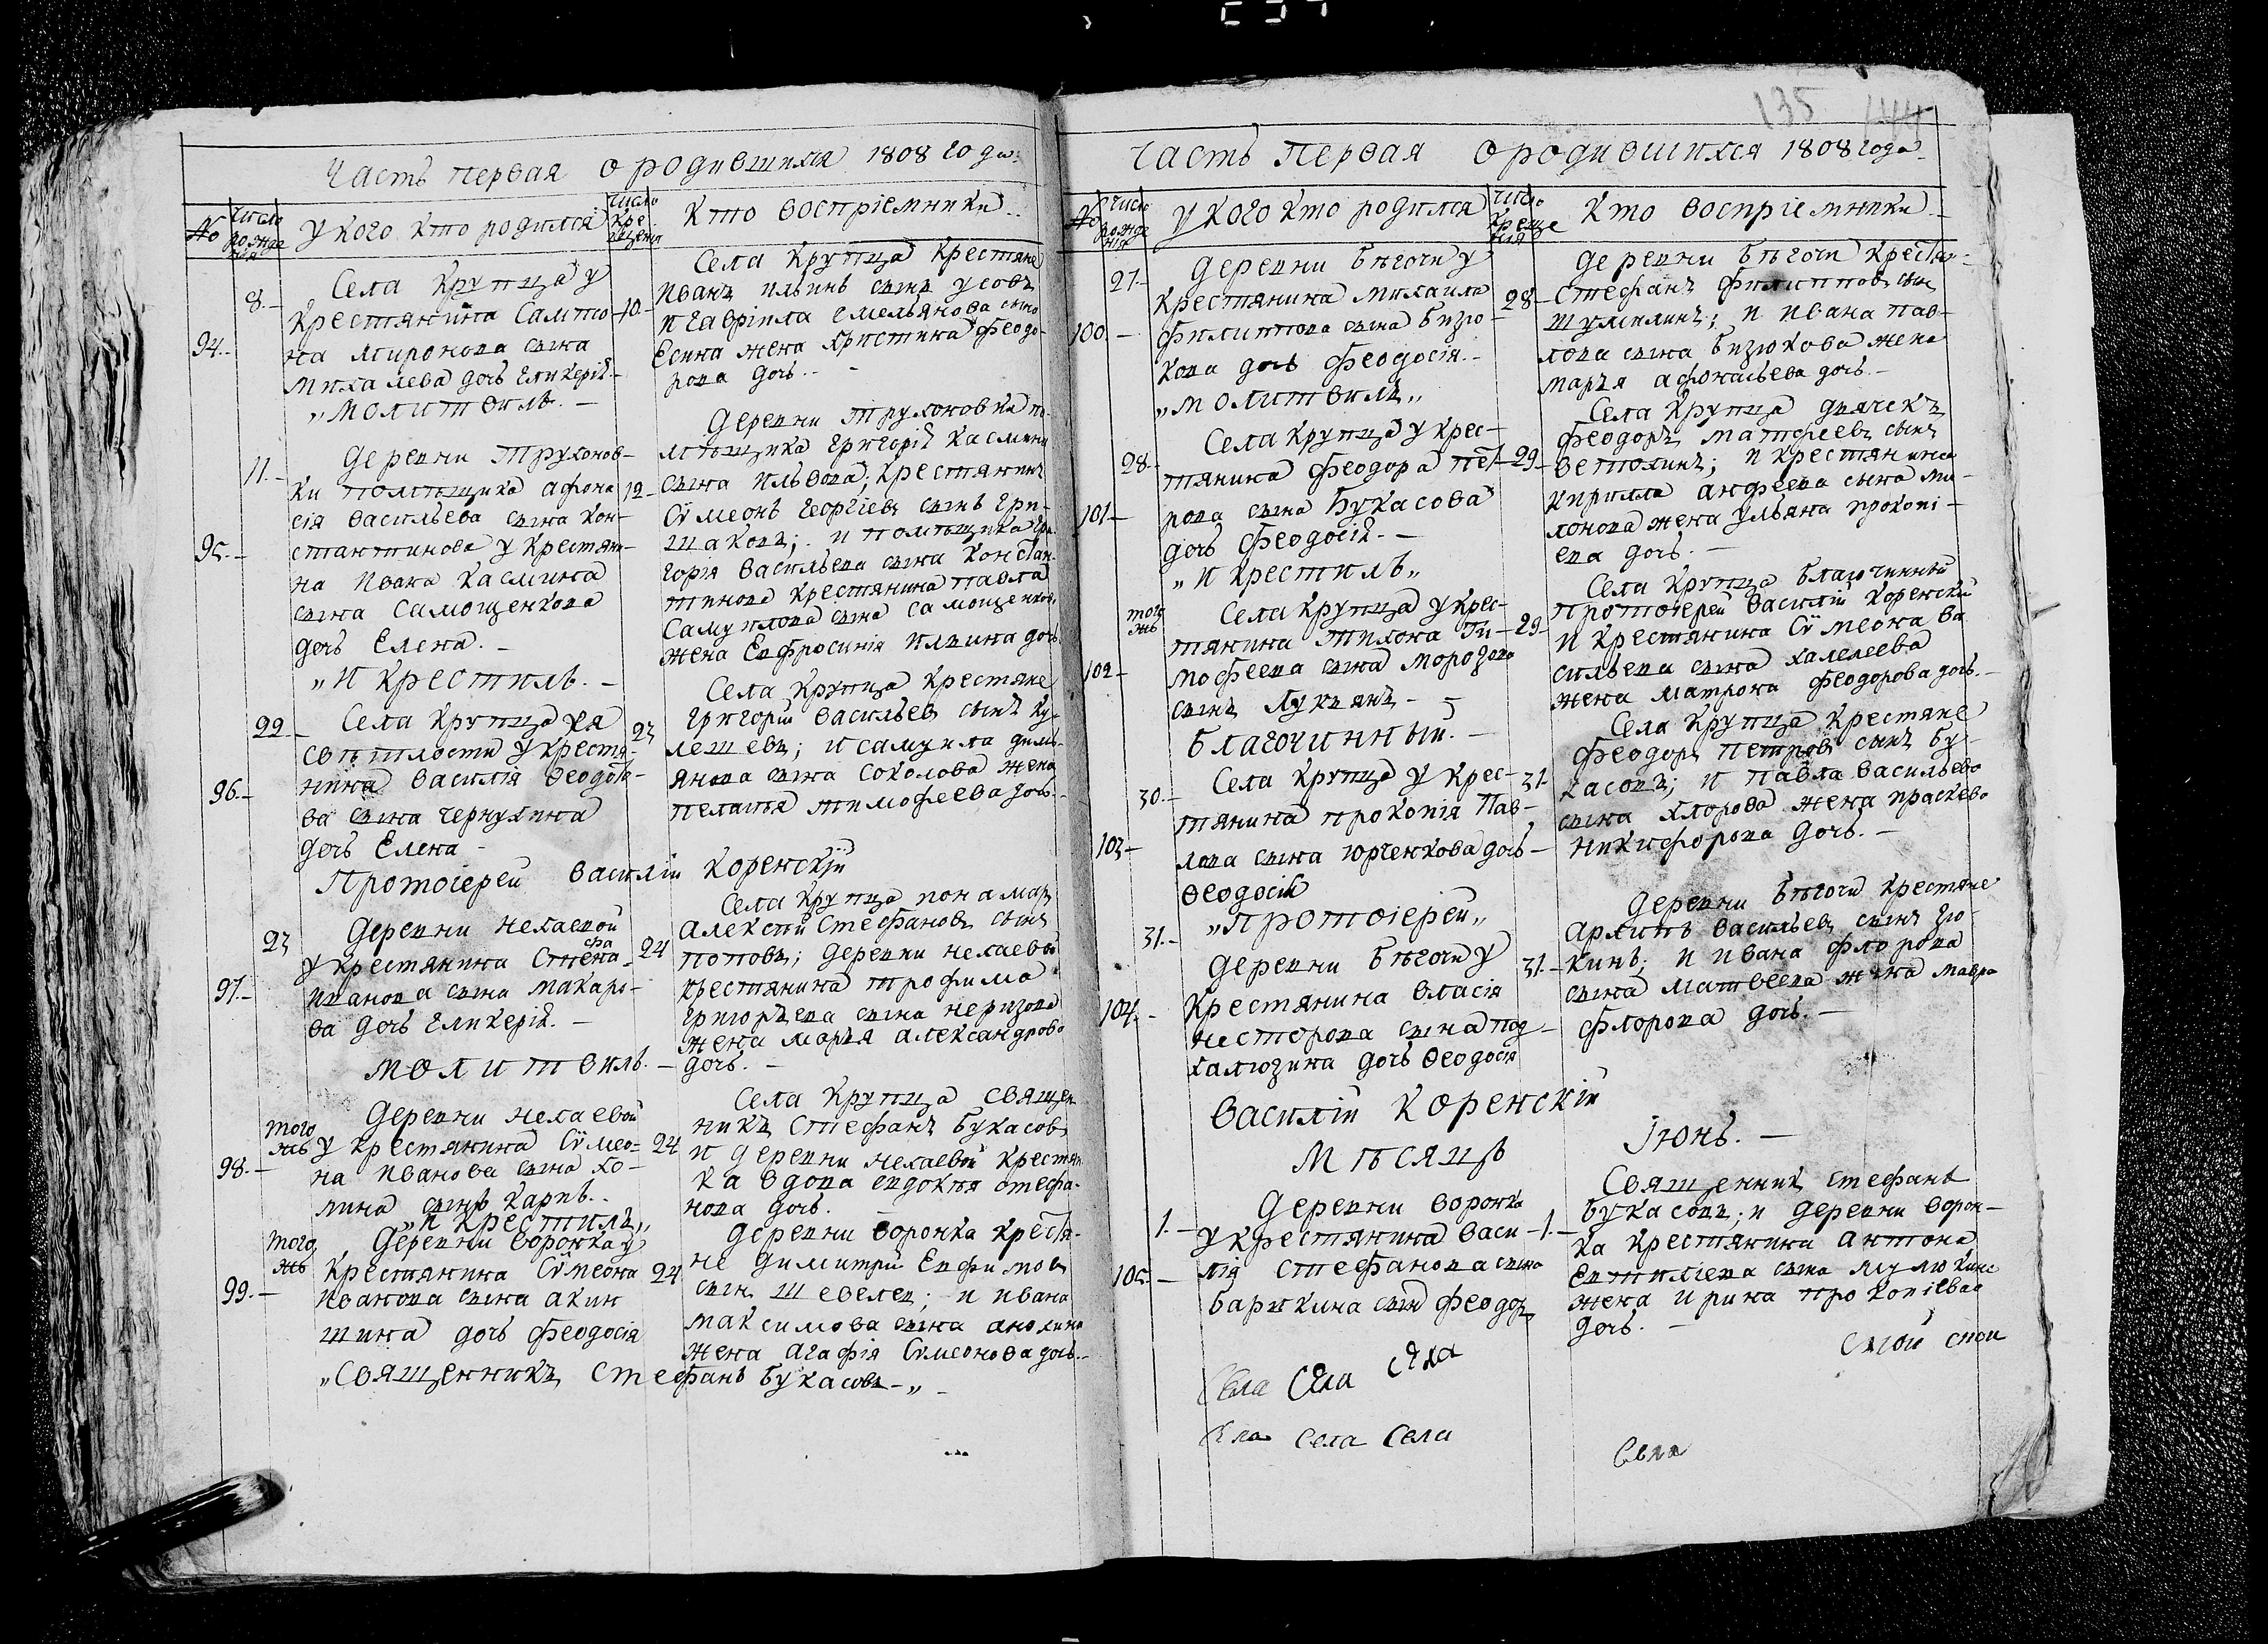 135 144
Часть первая о родившихся 1808 года
№ Число рождения У кого кто родился Число крещения Кто воспріемники
Села Крупца у
8. крестянина Сампсо-
94. на Миронова сына
Михалева дочь Гликерія
„Молитвилъ.
10. Села Крупца крестяне
Иванъ Ильинъ сынъ Усовъ
и Гавріила Емельянова сына
Есина жена Христина Феодо-
рова дочь.
11. Деревни Трухонов-
ки помѣщика Афона
сія Васильева сына Кон-
95. стантинова у крестяни-
на Ивана Касмина
сына Самощенкова
дочь Елена.
„И крестилъ.
12. Деревни Трухоновки по-
мѣщика Григорій Касмина
сына Ильвова; крестянинъ
Сѵмеонъ Георгіевъ сынъ Гри-
шаковъ; и помѣщика Гри-
горія Васильева сына Констан-
тинова крестянина Павла
Самуилова сына Самощенкова
жена Евфросинія Ильина дочь
22. Села Крупца ея
свѣтлости у крестя-
96. нина Василія Ѳеодото-
ва сына Чернухина
дочь Елена
23 Села Крупца крестяне
Григорій Васильевъ сынъ Ку-
лешевъ; и Самуила Деми-
янова сына Соколова жена
Пелагья Тимофеева дочь.
Протоіерей Василій Коренскій
23 Деревни Нехаевой
у крестянина Стефа
на
97. Иванова сына Макаро-
ва дочь Гликерія.
Молитвилъ.
24 Села Крупца понамарь
Алексѣй Стефановъ сынъ
Поповъ; деревни Нехаевой
крестянина Трофима
Григорьева сына
жена Марья Александрова
дочь.
того жъ Деревни Нехаевой
у крестянина Сѵмео-
98. на Иванова сына Хо-
лина сынъ Карпъ.
„И крестилъ„
24 Села Крупца священ
никъ Стефанъ Букасовъ
и деревни Нехаевой крестян
ка вдова Евдокія Стефа-
нова дочь.
того жъ Деревни Воронка у
крестянина Сѵмеона
99. Иванова сына Акин
шина дочь Феодосія
24 Деревни Воронка крестя-
не Димитрій Евфимовъ
сынъ Шевелев; и Ивана
Максимова сына Анохина
жена Агафія Сѵмеонова дочь.
„Священникъ Стефанъ Букасовъ„
Часть первая о родившихся 1808 года
№ Число рожденія У кого кто родился Число крещенія Кто воспріемники
27. Деревни Бѣгочи у
крестянина Михаила
100. Филиппова сына Бизю-
кова дочь Феодосія.
„Молитвилъ„
28. Деревни Бѣгочи крестян-
Стефанъ Филипповъ сынъ
Шумилинъ; и Ивана Пав-
лова сына Бизюкова жена
Марья Афонасьева дочь.
28. Села Крупца у крес-
тянина Феодора Пет
101. рова сына Букасова
дочь Феодосія.
„И крестилъ„
29. Села Крупца дьячекъ
Феодоръ Матфеевъ сынъ
Ветохинъ; и крестянина
Кирилла Анфеева сына Ми-
хонова жена Ульяна Прокопі-
ева дочь.
того жъ Села Крупца у крес-
тянина Тихона Ти-
102. мофеева сына Морозова
сынъ Лукьянъ
Благочинный.
29. Села Крупца благочинный
протоіерей Василій Коренскій
и крестянина Сѵмеона Ва
сильева сына Халелеева
жена Матрона Феодорова дочь.
30. Села Крупца у крес-
тянина Прокопія Пав-
103. лова сына Юрченкова дочь
Ѳеодосія
„Протоіерей„
31. Села Крупца крестяне
Феодоръ Петровъ сынъ Бу-
касовъ; и Павла Васильева
сына Хлорова жена Праскева
Никифорова дочь.
31. Деревни Бѣгочи у
крестянина Власія
104. Нестерова сына Под
калюзина дочь Ѳеодосія
31. Деревни Бѣгочи крестяне
Архипъ Васильевъ сынъ Зю-
кинъ; и Ивана Флорова
сына Матвеева жена Мавра
Флорова дочь.
Василій Коренскій
Мѣсяцъ Іюнь.
1. Деревни Воронка
у крестянина Васи
105. лія Стефанова сына
Барыкина сынъ Феодоръ
1. Священникъ Стефанъ
Букасовъ; и деревни Ворон-
ка крестянина Антона
Евтихіева сына Мулюкина
жена Ирина Прокопіева
дочь.
Села Села Села
Села Села Села
Села